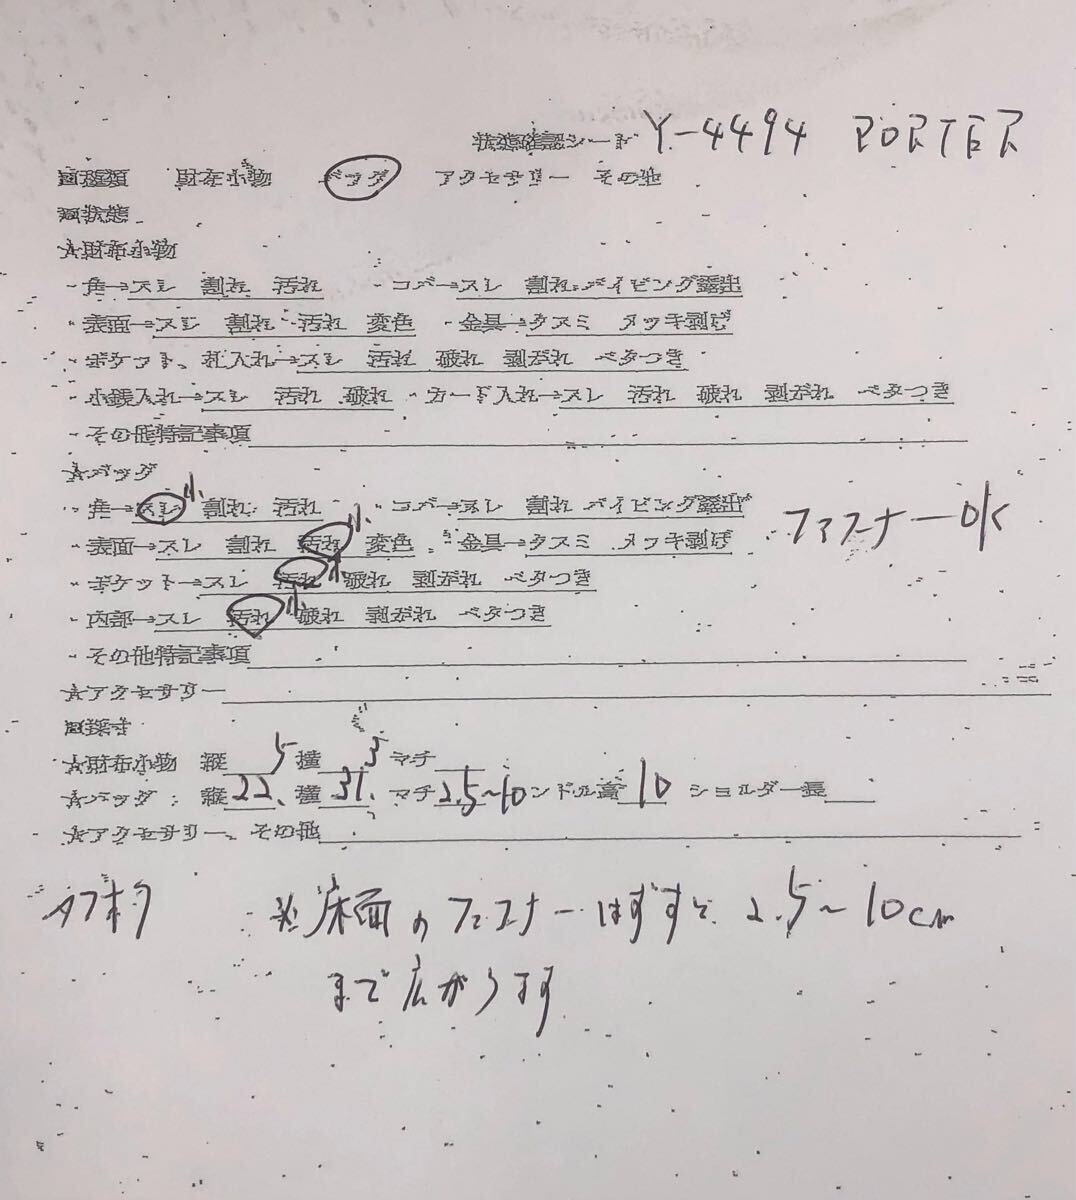 状態確認シート Y-4494 PORTER
回種類 財布小物 バッグ アクセサリー その他
回状態
★財布小物
・角→スレ 割れ 汚れ ・コバ→スレ 割れ パイピング露出
・表面→スレ 割れ 汚れ 変色 ・金具→クスミ メッキ剥げ
・ポケット、札入れ→スレ 汚れ 破れ 剥がれ ベタつき
・小銭入れ→スレ 汚れ 破れ ・カード入れ→スレ 汚れ 破れ 剥がれ ベタつき
・その他特記事項
★バッグ
・角→スレ小 割れ 汚れ ・コバ→スレ 割れ パイピング露出
ファスナーOK
・表面→スレ 割れ 汚れ小 変色 ・金具→クスミ メッキ剥げ
・ポケット→スレ 汚れ小 破れ 剥がれ ベタつき
・内部→スレ 汚れ小 破れ 剥がれ ベタつき
・その他特記事項
★アクセサリー
回採寸
★財布小物 縦 5 横 5 マチ
★バッグ：縦22、横31、マチ2.5～10ンドル高10 ショルダー長
★アクセサリー、その他
※床面のファスナーはずすと 2.5～10cm
まで広がります